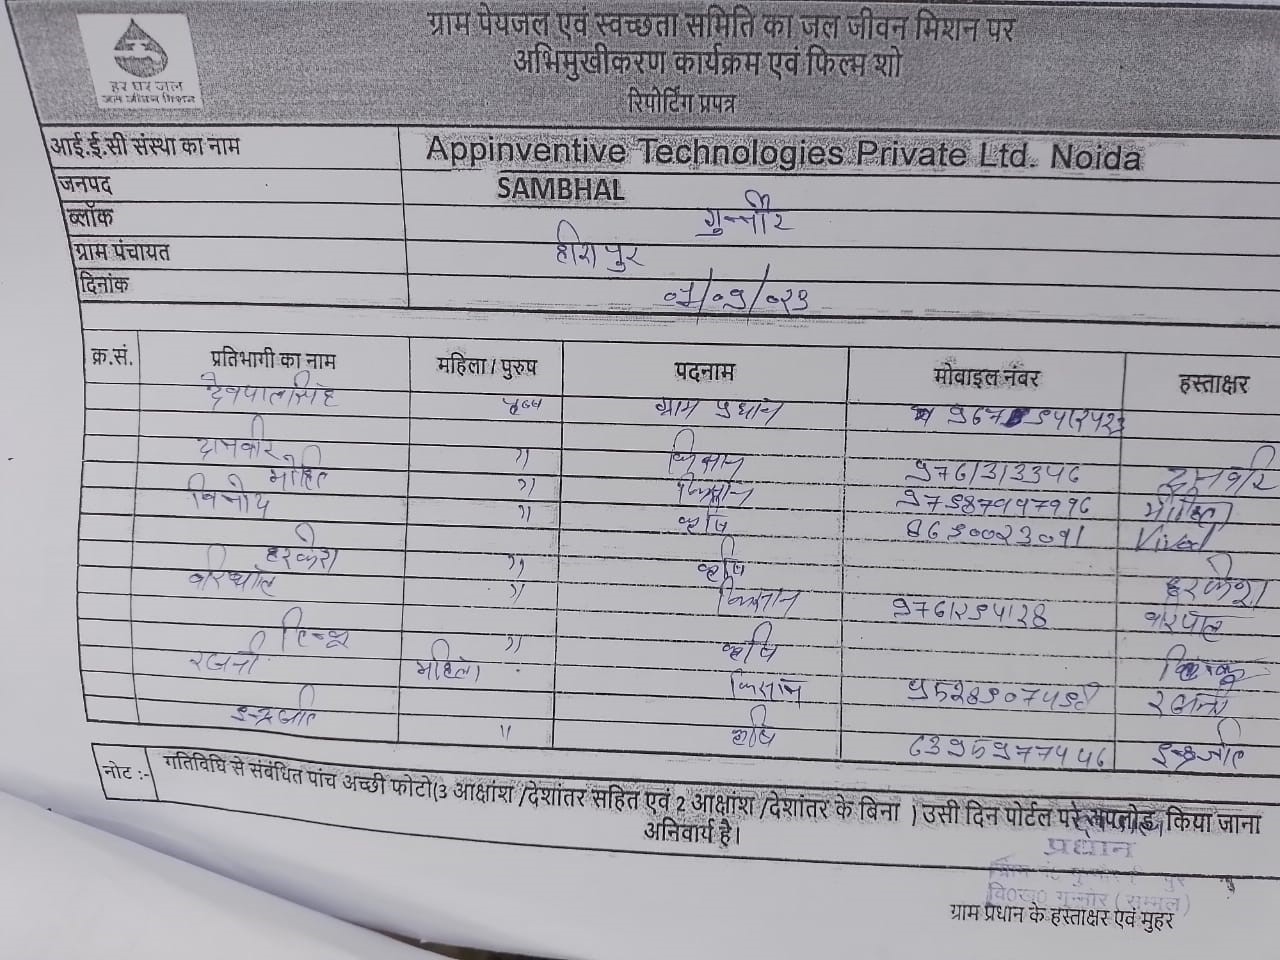 हर घर जल
जल जीवन मिशन
ग्राम पेयजल एवं स्वच्छता समिति का जल जीवन मिशन पर
अभिमुखीकरण कार्यक्रम एवं फिल्म शो
रिपोर्टिंग प्रपत्र
आई.ई.सी संस्था का नाम Appinventive Technologies Private Ltd. Noida
जनपद SAMBHAL
ब्लॉक गुन्नौर
ग्राम पंचायत हीरापुर
दिनांक
क्र.सं. प्रतिभागी का नाम महिला / पुरुष पदनाम मोबाइल नंबर हस्ताक्षर
देवपालसिंह पुरुष ग्राम प्रधान
दानवीर " किसान 9761313346 दानवीर
मोहित " किसान मोहित
विनोद " कृषि Vinod
हरकेश " कृषि हरकेश
वीरपाल " किसान वीरपाल
" कृषि
रजनी महिला किसान रजनी
इन्द्रजीत " कृषि इन्द्रजीत
नोट :- गतिविधि से संबंधित पांच अच्छी फोटो(3 आक्षांश /देशांतर सहित एवं 2 आक्षांश /देशांतर के बिना ) उसी दिन पोर्टल पर अपलोड किया जाना
अनिवार्य है।
प्रधान
वि०ख० गुन्नौर (सम्भल)
ग्राम प्रधान के हस्ताक्षर एवं मुहर